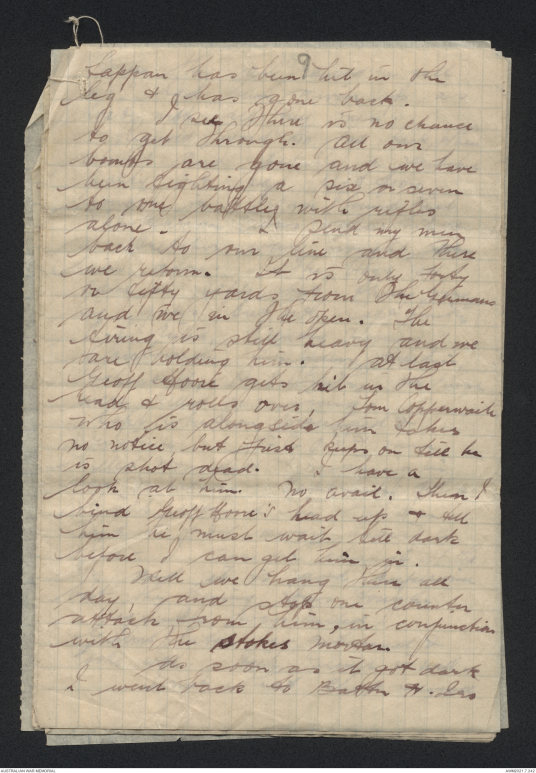 9
Lappan has been hit in the
leg & has gone back.
I see there is no chance
to get through. All our
bombs are gone and we have
been fighting a six or seven
to one battle, with rifles
alone. I send my men
back to our line and there
we reform. It is only forty
or fifty yards from the Germans
and we in the open. The
firing is still heavy and we
are holding him. At last
Geoff Hoore gets hit in the
head & rolls over, Tom Copperwaite
who is alongside him takes
no notice but just keeps on till he
is shot dead. I have a
look at him. No avail. Then I
bind Geoff Hoore's head up & tell
him he must wait till dark
before I can get him in.
Well we hang there all
day, and stop one counter
attack from him, in conjunction
with the stokes mortar.
As soon as it got dark
I went back to Battn H. Qrs
AUSTRALIAN WAR MEMORIAL
AWM2021.7.242